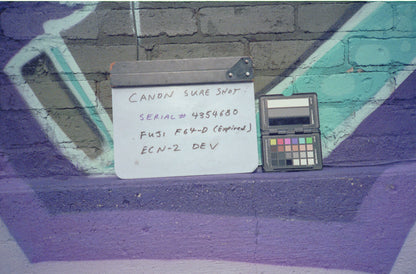 CANON SURE SHOT
SERIAL# 4354680
FUJI F64-D (Expired)
ECN-2 DEV